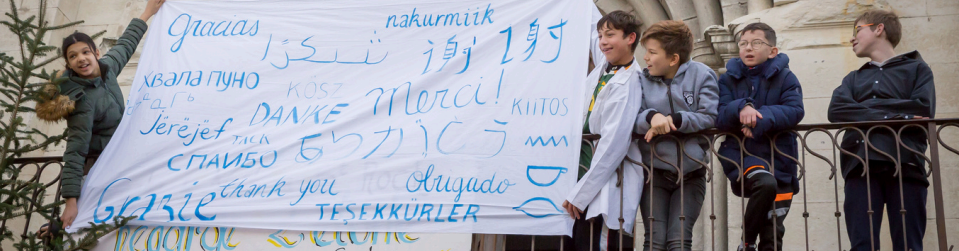 Gracias
nakurmiik
شكرًا
谢谢
ХВАЛА ПУНО
KÖSZ
DANKE
merci!
KIITOS
Jërëjëf
TACK
СПАИБО
ありがとう
Grazie
thank you
Obrigado
TEŞEKKÜRLER